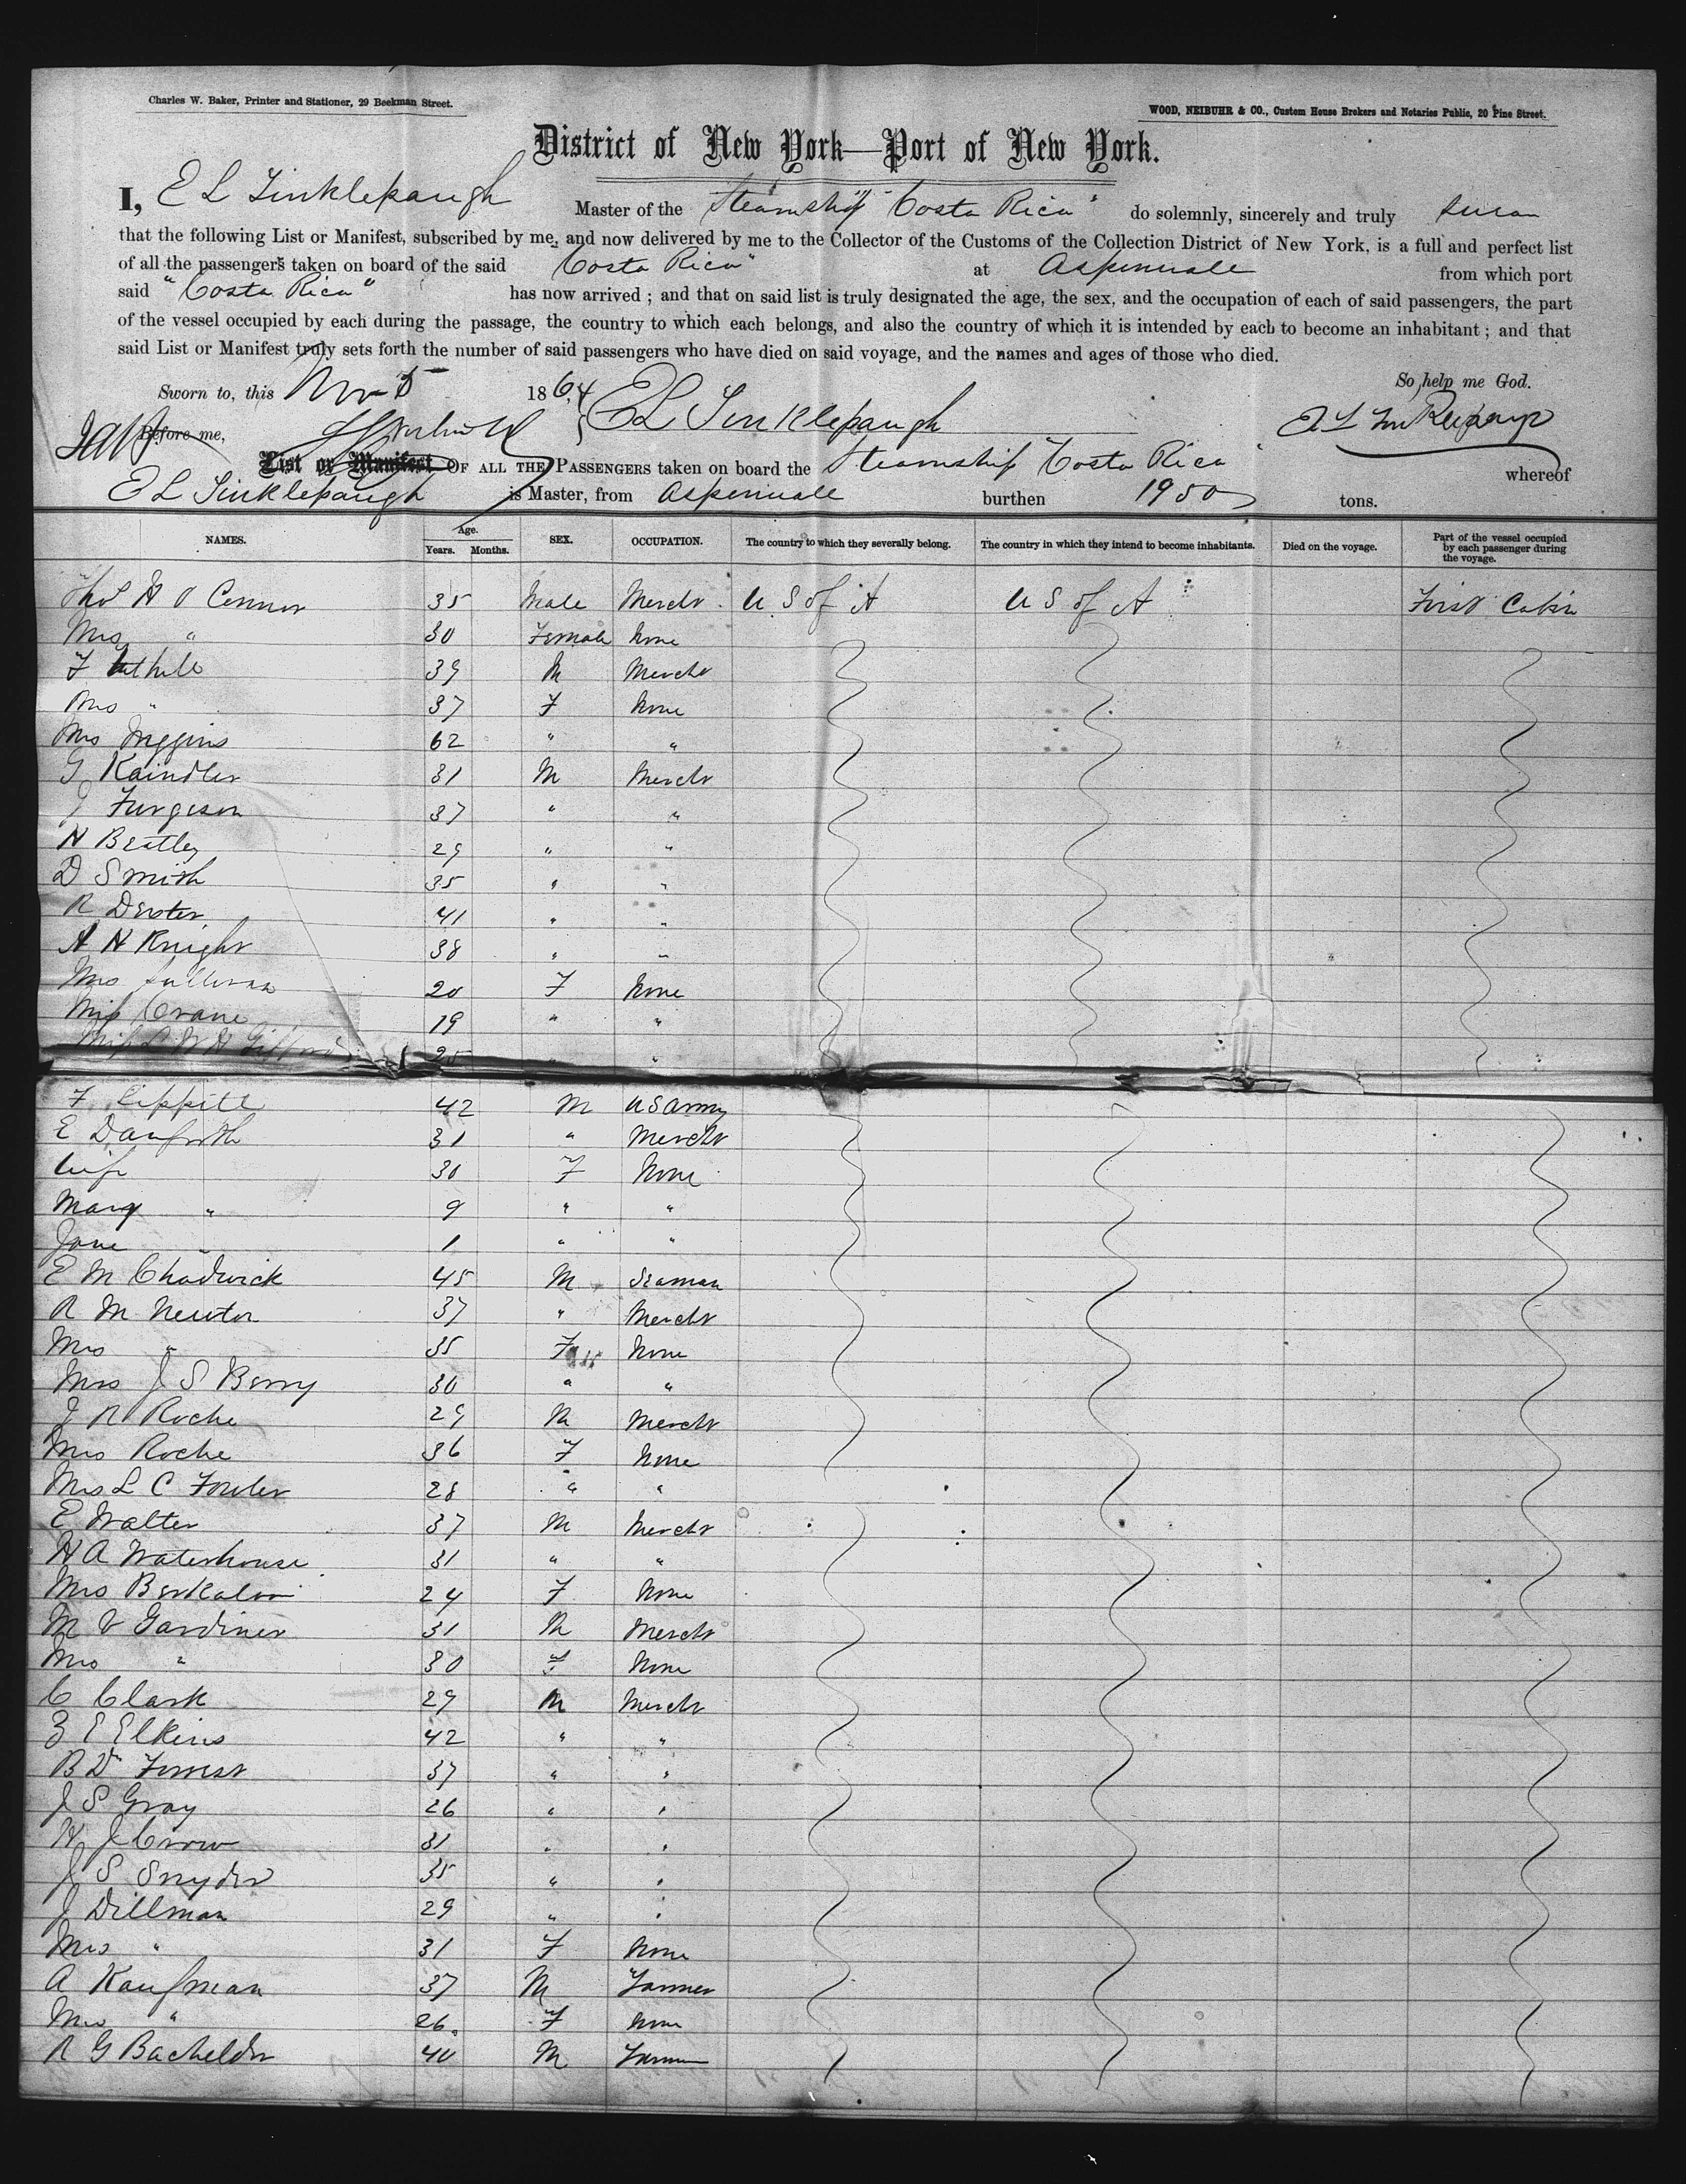 Charles W. Baker, Printer and Stationer, 29 Beekman Street.
WOOD, NEIBUHR & CO., Custom House Brokers and Notaries Public, 20 Pine Street.
District of New York—Port of New York.
I, E L Tinklepaugh Master of the Steamship "Costa Rica" do solemnly, sincerely and truly swear
that the following List or Manifest, subscribed by me, and now delivered by me to the Collector of the Customs of the Collection District of New York, is a full and perfect list
of all the passengers taken on board of the said Costa Rica" at Aspinwall from which port
said "Costa Rica" has now arrived ; and that on said list is truly designated the age, the sex, and the occupation of each of said passengers, the part
of the vessel occupied by each during the passage, the country to which each belongs, and also the country of which it is intended by each to become an inhabitant ; and that
said List or Manifest truly sets forth the number of said passengers who have died on said voyage, and the names and ages of those who died.
So help me God.
Sworn to, this Nov 5 1864 E L Tinklepaugh E L Tinklepaugh
Before me,
List or Manifest OF ALL THE PASSENGERS taken on board the Steamship "Costa Rica" whereof
E L Tinklepaugh is Master, from Aspinwall burthen 1950 tons.
NAMES. Age. Years. Months. SEX. OCCUPATION. The country to which they severally belong. The country in which they intend to become inhabitants. Died on the voyage. Part of the vessel occupied by each passenger during the voyage.
Thos H O Connor 35 Male Mercht. U S of A U S of A First Cabin
Mrs " 30 Female None
F 39 M Mercht
Mrs " 37 F None
Mrs 62 " "
G Kaindler 31 M Mercht
J Furgeson 37 " "
H Beatley 29 " "
D Smith 35 " "
R Dexter 41 " "
A H Knight 38 " "
Mrs Sullivan 20 F None
Miss Crane 19 " "
Miss Gifford 25 " "
F Lippitt 42 M U S Army
E Danforth 31 " Mercht
Wife 30 F None
Mary " 9 " "
Jane " 1 " "
E M Chadwick 45 M Seaman
R M Newton 37 " Mercht
Mrs " 35 F None
Mrs J S Berry 30 " "
J R Roche 29 M Mercht
Mrs Roche 36 F None
Mrs L C Fowler 28 " "
E Walter 37 M Mercht
H A Waterhouse 31 " "
Mrs 24 F None
M V Gardiner 31 M Mercht
Mrs " 30 F None
C Clark 29 M Mercht
Z E Elkins 42 " "
B D Forrest 37 " "
J S Gray 26 " "
W J Crow 31 " "
J S Snyder 35 " "
J Dillman 29 " "
Mrs " 31 F None
A Kaufman 37 M Farmer
Mrs " 26 F None
R G Bachelder 40 M Farmer